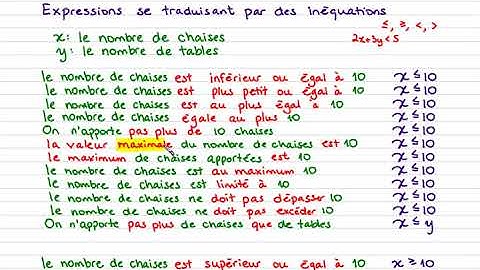 Expressions se traduisant par des inéquations
≤, ≥, <, >
x: le nombre de chaises
2x+3y<5
y: le nombre de tables
le nombre de chaises est inférieur ou égal à 10 x ≤ 10
le nombre de chaises est plus petit ou égal à 10 x ≤ 10
le nombre de chaises est au plus égal à 10 x ≤ 10
le nombre de chaises égale au plus 10 x ≤ 10
On n'apporte pas plus de 10 chaises x ≤ 10
la valeur maximale du nombre de chaises est 10 x ≤ 10
le maximum de chaises apportées est 10 x ≤ 10
le nombre de chaises est au maximum 10 x ≤ 10
le nombre de chaises est limité à 10 x ≤ 10
le nombre de chaises ne doit pas dépasser 10 x ≤ 10
le nombre de chaises ne doit pas excéder 10 x ≤ 10
On n'apporte pas plus de chaises que de tables x ≤ y
le nombre de chaises est supérieur ou égal à 10 x ≥ 10